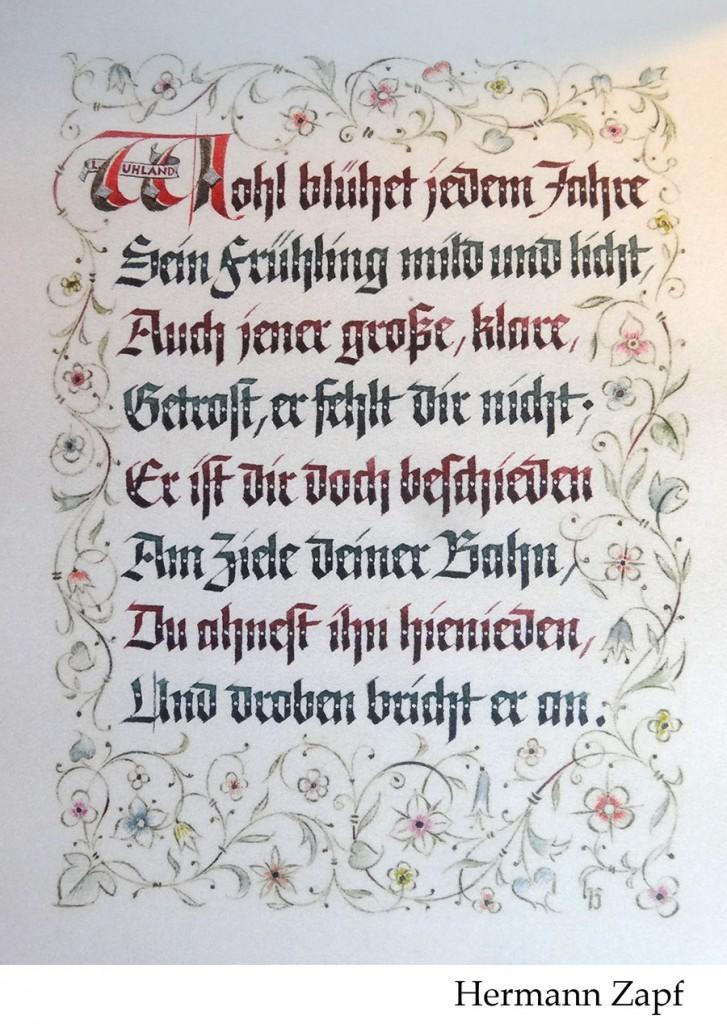 L. UHLAND
Wohl blühet jedem Jahre
Sein Frühling mild und licht,
Auch jener große, klare,
Getrost, er fehlt dir nicht;
Er ist dir doch beschieden
Am Ziele deiner Bahn,
Du ahnest ihn hienieden,
Und droben bricht er an.
Hermann Zapf